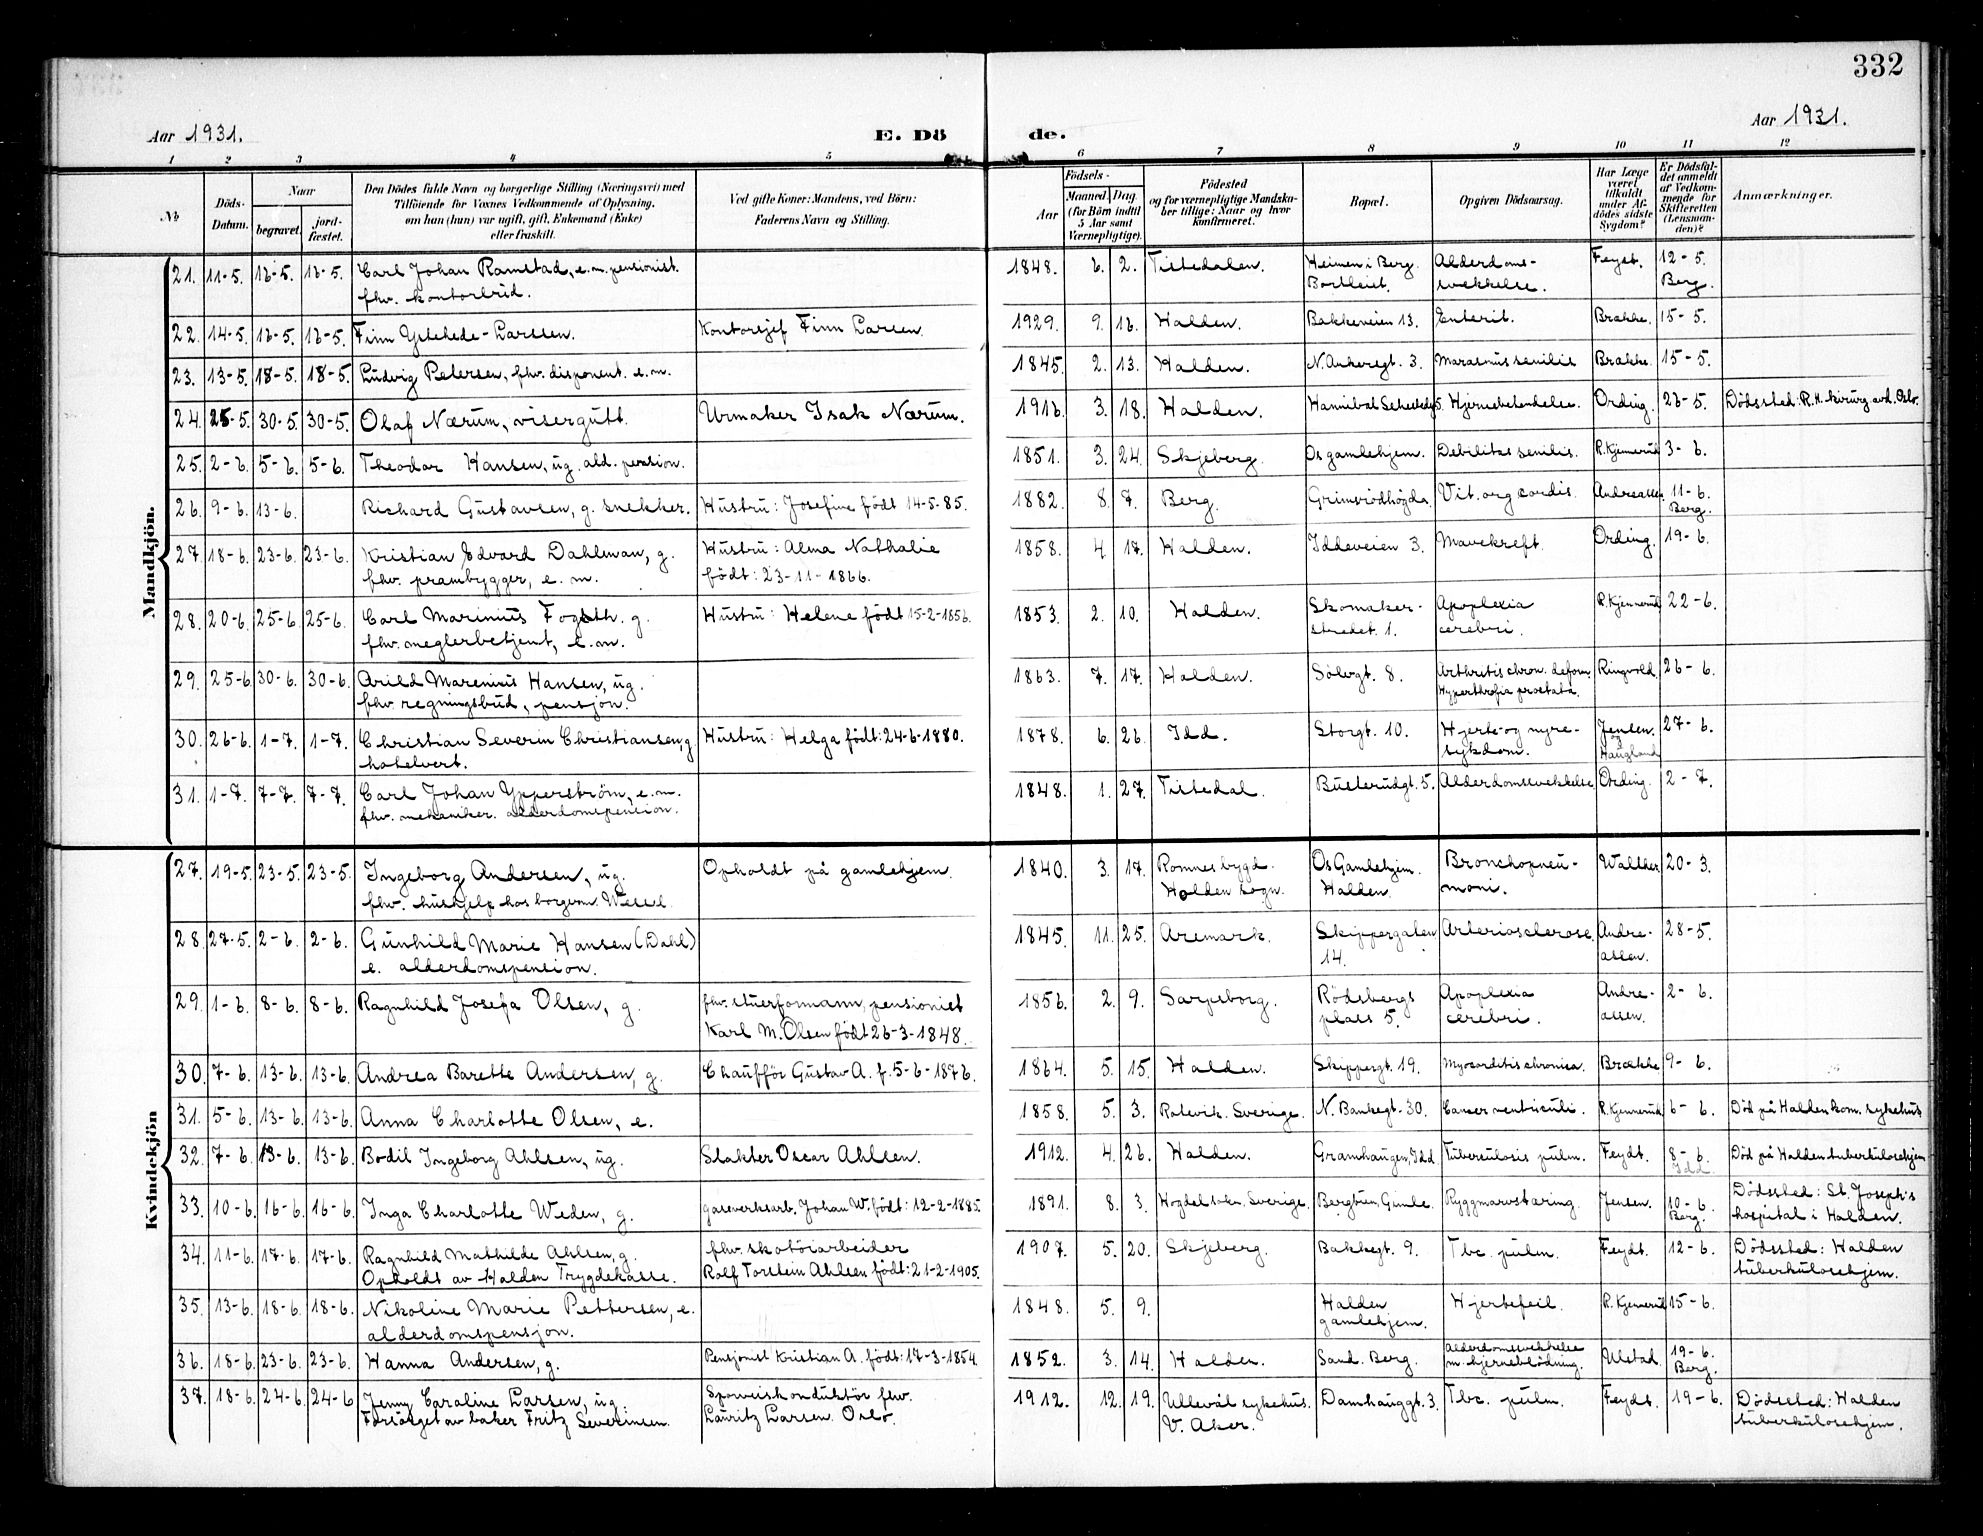 332
Aar 1931.
E. Dö de.
Aar 1931.
1 2 3 4 5 6 7 8 9 10 11 12
No
Döds-Datum.
Naar
begravet.
jord-fæstet.
Den Dödes fulde Navn og borgerlige Stilling (Næringsvei) med
Tilföiende for Voxnes Vedkommende af Oplysning,
om han (hun) var ugift, gift, Enkemand (Enke)
eller fraskilt.
Ved gifte Koner: Mandens, ved Börn:
Faderens Navn og Stilling.
Födsels-
Aar
Maaned. Dag.
(for Börn indtil
5 Aar samt
Værnepligtige).
Födested
og for værnepligtige Mandska-
ber tillige: Naar og hvor
konfirmeret.
Bopæl.
Opgiven Dödsaarsag.
Har Læge
været
tilkaldt
under Af-
dödes sidste
Sygdom?
Er Dödsfal-
det anmeldt
af Vedkom-
mende for
Skifteretten
(Lensman-
den)?
Anmærkninger.
Mandkjön.
21. 11-5. 16-5. 16-5. Carl Johan Ramstad, e.m. pensionist. 1848. 6. 2. Tistedalen. Heimen i Berg. Alderdoms- Feydt. 12-5.
fhv. kontorbud. Bortleiet. svekkelse. Berg.
22. 14-5. 16-5. 16-5. Finn Ystehede-Larssen. Kontorsjef Finn Larsen. 1929. 9. 16. Halden. Bakkeveien 13. Enterit. Brække. 15-5.
23. 13-5. 18-5. 18-5. Ludvig Petersen, fhv. disponent. e.m. 1845. 2. 13. Halden. N. Ankersgt. 3. Marasmus senilis Brække. 15-5.
24. 25-5. 30-5. 30-5. Olaf Nærum, visergutt. Urmaker Isak Nærum. 1916. 3. 18. Halden. Hannibal Sehestedsg 5. Hjernebetendelse. Ording. 26-5. Dödssted: R.H. kirurg avd. Oslo.
25. 2-6. 5-6. 5-6. Theodor Hansen, ug. ald. pension. 1851. 3. 24. Skjeberg. Os gamlehjem. Debilitas senilis. R. Kjennerud 3-6.
26. 9-6. 13-6. Richard Gustavsen, g. snekker. Hustru: Josefine födt 14-5-85. 1882. 8. 7. Berg. Grimsrödhögda. Vit. org cordis. Andreassen 11-6.
Berg.
27. 18-6. 23-6. 23-6. Kristian Edvard Dahlman, g. Hustru: Alma Nathalie 1858. 4 17. Halden. Iddeveien 3. Mavekreft. Ording. 19-6.
fhv. prambygger, e.m. födt: 23-11-1866.
28. 20-6. 25-6. 25-6. Carl Marinius Fogsth. g. Hustru: Helene födt 15-2-1856. 1853. 2. 10. Halden. Skomaker- Apoplexia R. Kjennerud 22-6.
fhv. meglerbetjent, e.m. stredet. 1. cerebri.
29. 25-6 30-6. 30-6. Arild Marenius Hansen, ug. 1863. 7. 17. Halden. Sölvgt. 8. Arthritis chron. deform. Ringvold. 26-6.
fhv. regningsbud, pensjon. Hyperthrofia prostata.
30. 26-6. 1-7. 1-7. Christian Severin Christiansen, g Hustru: Helga födt: 24-6-1880. 1878. 6. 26. Idd. Storgt. 10. Hjerte-og nyre- Jensen. 27-6.
hotelvert. sykdom. og Haugland
31. 1-7. 7-7. 7-7. Carl Johan Ypperström, e.m. 1848. 1. 27. Tistedal. Busterudgt. 5. Alderdomssvekkelse. Ording. 2-7.
fhv. mekaniker. alderdomspension.
Kvindekjön
27. 19-5. 23-5. 23-5. Ingeborg Andersen, ug. Opholdt på gamlehjem. 1840. 3. 17. Romnesbygd. Os Gamlehjem. Bronchopneu- Walther. 20-3.
fhv. hushjelp hos borgerm. Wessel. Holden sogn. Halden. moni.
28. 27-5. 2-6. 2-6. Gunhild Marie Hansen (Dahl) 1845. 11. 25. Aremark. Skippergaten Arteriosclerose. Andre- 28-5.
e. alderdomspension. 14. assen.
29. 1-6. 8-6. 8-6. Ragnhild Josefa Olsen, g. fhv. stuerformann, pensionist 1856. 2. 9. Sarpsborg. Rödsbergs Apoplexia Andre- 2-6.
Karl M. Olsen födt 26-3-1848. plass 5. cerebri. assen.
30. 7-6. 13-6. 13-6. Andrea Barette Andersen, g. Chaufför Gustav A. f. 5-6-1876. 1864. 5. 15. Halden. Skippergt. 19. Myocarditis chronica. Brække 9-6.
31. 5-6. 13-6. 13-6. Anna Charlotte Olsen, e. 1858. 5. 3. Sverige. N. Bankegt. 30. Cancer ventriculi. R. Kjennerud 6-6. Död på Halden kom. sykehus
32. 7-6. 13-6. 13-6. Bodil Ingeborg Ahlsen, ug. Slakter Oscar Ahlsen. 1912. 4. 26. Halden. Gramhaugen, Idd Tuberculosis pulm. Feydt. 8-6. Död på Halden tuberkulosehjem
Idd
33. 10-6. 16-6. 16-6. Inga Charlotte Weden, g. gassverksarb. Johan W. födt: 12-2-1885. 1891. 8. 3. Sverige. Bergtun, Gimle. Ryggmarvstæring. Jensen. 10-6. Dödssted: St. Joseph's
Berg. hospital i Halden.
34. 11-6. 17-6. 17-6. Ragnhild Mathilde Ahlsen, g. fhv. skotöiarbeider 1907. 5. 20. Skjeberg. Bakkegt. 9. Tbc. pulm. Feydt. 12-6. Dödssted: Halden
Opholdt av Halden Trygdekasse. Rolf Torstein Ahlsen födt: 21-2-1905. tuberkulosehjem.
35. 13-6. 18-6. 18-6. Nikoline Marie Pettersen, e. 1848. 5. 9. Halden Hjertefeil. R. Kjennerud 15-6.
alderdomspensjon. gamlehjem.
36. 18-6. 23-6. 23-6. Hanna Andersen, g. Pensjonist Kristian A. födt: 17-3-1854. 1852. 3. 14. Halden. Sand. Berg. Alderdomssvekkelse Ulstad. 19-6.
m. hjerneblödning. Berg.
37. 18-6. 24-6. 24-6 Jenny Caroline Larsen, ug. Sporveiskonduktör fhv. 1912. 12. 19. Ullevål sykehus. Damhauggt. 3. Tbc. pulm. Feydt. 19-6. Dödssted: Halden
Forsörget av baker Fritz Severinsen. Lauritz Larsen. Oslo. V. Aker. tuberkulosehjem.